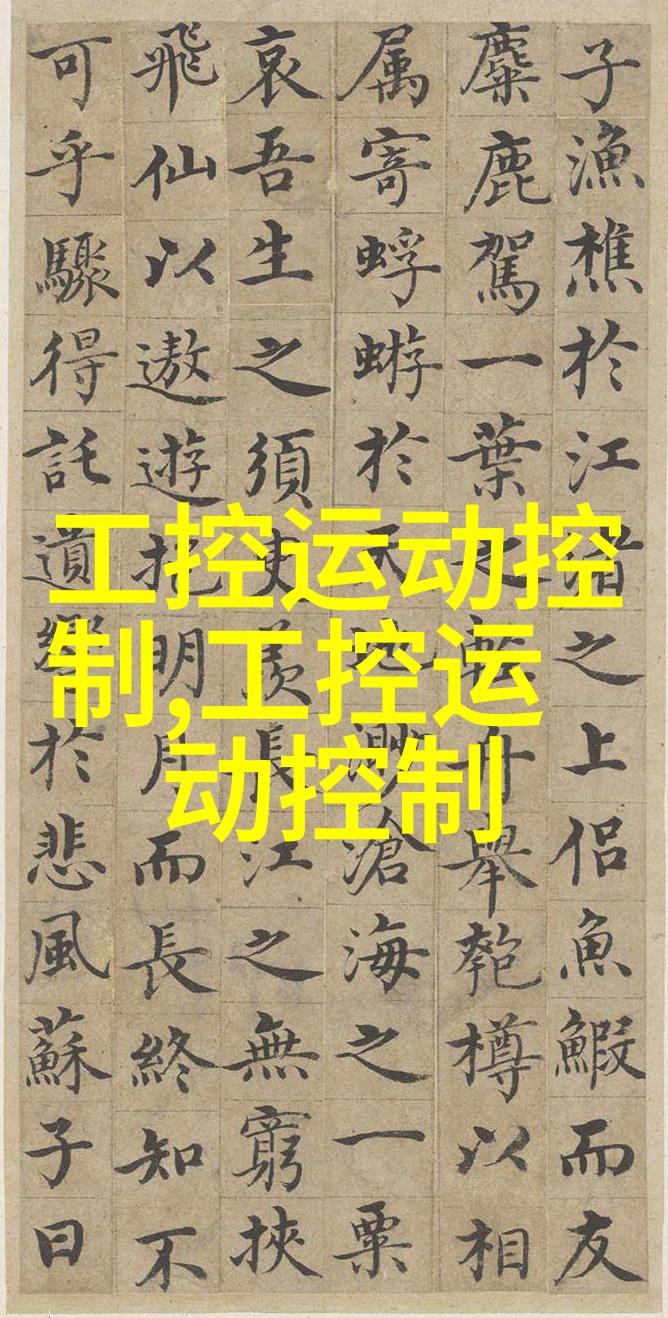 子漁樵於江渚之上侣魚鰕而友
麋鹿駕一葉之軽舟舉匏樽以相
属寄蜉蝣於天地渺滄海之一粟
哀吾生之須臾羡長江之無窮挾
飛仙以遨遊抱明月而長終知不
可乎驟得託遺響於悲風蘇子曰
工控运动控
制,工控运
动控制